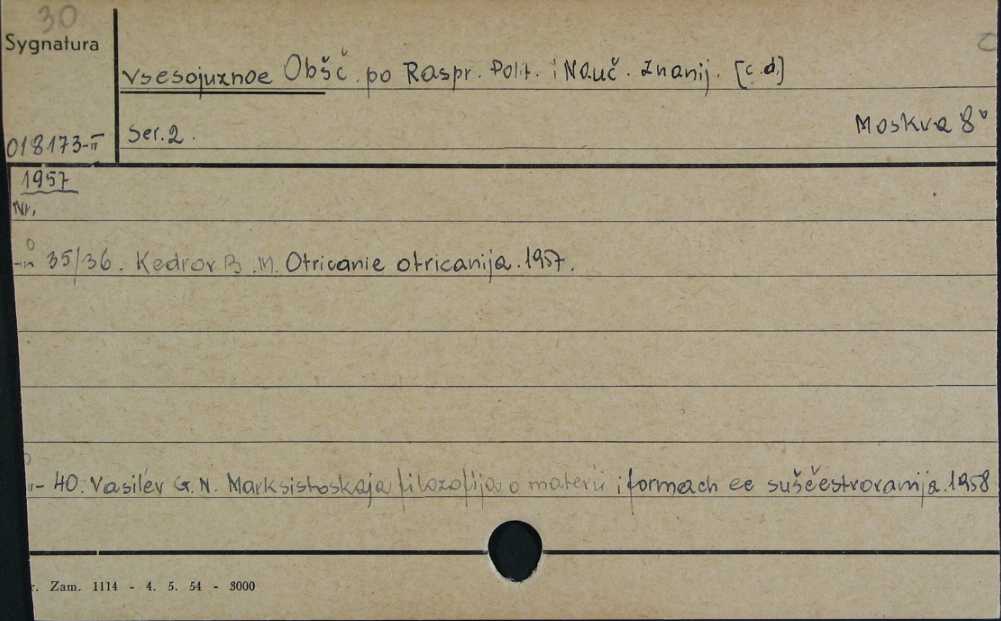 30
Sygnatura
Vsesojuznoe Obšč. po Raspr. Polit. i Nauč. Znanij. [c.d.]
018173-II
Ser. 2.
Moskva 8°
1957
Nr.
35/36. Kedrov B. M. Otricanie otricanija. 1957.
40. Vasilev G. N. Marksistskaja filozofija o materii i formach ee suščestvovanija. 1958
r. Zam. 1114 - 4. 5. 54 - 3000